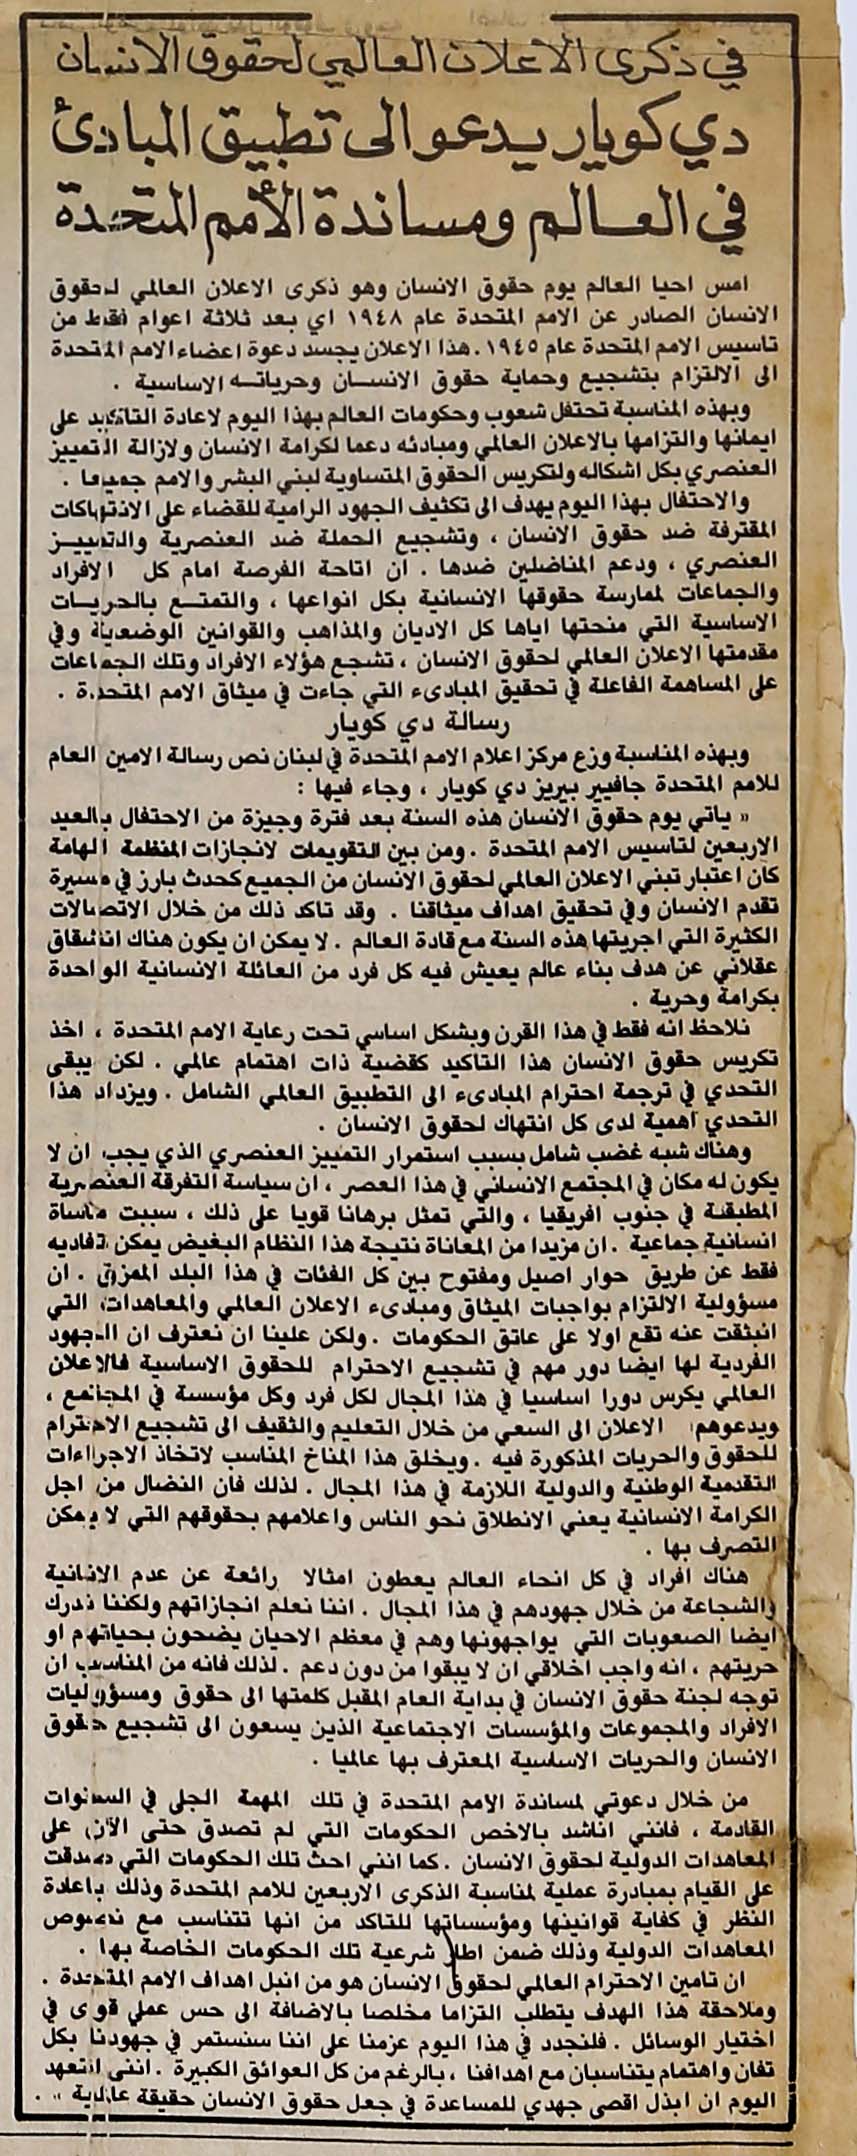 في ذكرى الاعلان العالمي لحقوق الانسان
دي كويار يدعو الى تطبيق المبادئ
في العالم ومساندة الأمم المتحدة
امس احيا العالم يوم حقوق الانسان وهو ذكرى الاعلان العالمي لحقوق
الانسان الصادر عن الامم المتحدة عام ١٩٤٨ اي بعد ثلاثة اعوام فقط من
تاسيس الامم المتحدة عام ١٩٤٥ . هذا الاعلان يجسد دعوة اعضاء الامم المتحدة
الى الالتزام بتشجيع وحماية حقوق الانسان وحرياته الاساسية .
وبهذه المناسبة تحتفل شعوب وحكومات العالم بهذا اليوم لاعادة التاكيد على
ايمانها والتزامها بالاعلان العالمي ومبادئه دعما لكرامة الانسان ولازالة التمييز
العنصري بكل اشكاله ولتكريس الحقوق المتساوية لبني البشر والامم جميعا .
والاحتفال بهذا اليوم يهدف الى تكثيف الجهود الرامية للقضاء على الانتهاكات
المقترفة ضد حقوق الانسان ، وتشجيع الحملة ضد العنصرية والتمييز
العنصري ، ودعم المناضلين ضدها . ان اتاحة الفرصة امام كل الافراد
والجماعات لممارسة حقوقها الانسانية بكل انواعها ، والتمتع بالحريات
الاساسية التي منحتها اياها كل الاديان والمذاهب والقوانين الوضعية وفي
مقدمتها الاعلان العالمي لحقوق الانسان ، تشجع هؤلاء الافراد وتلك الجماعات
على المساهمة الفاعلة في تحقيق المبادىء التي جاءت في ميثاق الامم المتحدة .
رسالة دي كويار
وبهذه المناسبة وزع مركز اعلام الامم المتحدة في لبنان نص رسالة الامين العام
للامم المتحدة جافيير بيريز دي كويار ، وجاء فيها :
« ياتي يوم حقوق الانسان هذه السنة بعد فترة وجيزة من الاحتفال بالعيد
الاربعين لتاسيس الامم المتحدة . ومن بين التقويمات لانجازات المنظمة الهامة
كان اعتبار تبني الاعلان العالمي لحقوق الانسان من الجميع كحدث بارز في مسيرة
تقدم الانسان وفي تحقيق اهداف ميثاقنا . وقد تاكد ذلك من خلال الاتصالات
الكثيرة التي اجريتها هذه السنة مع قادة العالم . لا يمكن ان يكون هناك انشقاق
عقلاني عن هدف بناء عالم يعيش فيه كل فرد من العائلة الانسانية الواحدة
بكرامة وحرية .
نلاحظ انه فقط في هذا القرن وبشكل اساسي تحت رعاية الامم المتحدة ، اخذ
تكريس حقوق الانسان هذا التاكيد كقضية ذات اهتمام عالمي . لكن يبقى
التحدي في ترجمة احترام المبادىء الى التطبيق العالمي الشامل . ويزداد هذا
التحدي اهمية لدى كل انتهاك لحقوق الانسان .
وهناك شبه غضب شامل بسبب استمرار التمييز العنصري الذي يجب ان لا
يكون له مكان في المجتمع الانساني في هذا العصر ، ان سياسة التفرقة العنصرية
المطبقة في جنوب افريقيا ، والتي تمثل برهانا قويا على ذلك ، سببت ماساة
انسانية جماعية . ان مزيدا من المعاناة نتيجة هذا النظام البغيض يمكن تفاديه
فقط عن طريق حوار اصيل ومفتوح بين كل الفئات في هذا البلد الممزق . ان
مسؤولية الالتزام بواجبات الميثاق ومبادىء الاعلان العالمي والمعاهدات التي
انبثقت عنه تقع اولا على عاتق الحكومات . ولكن علينا ان نعترف ان الجهود
الفردية لها ايضا دور مهم في تشجيع الاحترام للحقوق الاساسية فالاعلان
العالمي يكرس دورا اساسيا في هذا المجال لكل فرد وكل مؤسسة في المجتمع ،
ويدعوهم الاعلان الى السعي من خلال التعليم والثقيف الى تشجيع الاحترام
للحقوق والحريات المذكورة فيه . ويخلق هذا المناخ المناسب لاتخاذ الاجراءات
التقدمية الوطنية والدولية اللازمة في هذا المجال . لذلك فان النضال من اجل
الكرامة الانسانية يعني الانطلاق نحو الناس واعلامهم بحقوقهم التي لا يمكن
التصرف بها .
هناك افراد في كل انحاء العالم يعطون امثالا رائعة عن عدم الانانية
والشجاعة من خلال جهودهم في هذا المجال . اننا نعلم انجازاتهم ولكننا ندرك
ايضا الصعوبات التي يواجهونها وهم في معظم الاحيان يضحون بحياتهم او
حريتهم ، انه واجب اخلاقي ان لا يبقوا من دون دعم . لذلك فانه من المناسب ان
توجه لجنة حقوق الانسان في بداية العام المقبل كلمتها الى حقوق ومسؤوليات
الافراد والمجموعات والمؤسسات الاجتماعية الذين يسعون الى تشجيع حقوق
الانسان والحريات الاساسية المعترف بها عالميا .
من خلال دعوتي لمساندة الامم المتحدة في تلك المهمة الجلى في السنوات
القادمة ، فانني اناشد بالاخص الحكومات التي لم تصدق حتى الآن على
المعاهدات الدولية لحقوق الانسان . كما انني احث تلك الحكومات التي صدقت
على القيام بمبادرة عملية لمناسبة الذكرى الاربعين للامم المتحدة وذلك باعادة
النظر في كفاية قوانينها ومؤسساتها للتاكد من انها تتناسب مع نصوص
المعاهدات الدولية وذلك ضمن اطار شرعية تلك الحكومات الخاصة بها .
ان تامين الاحترام العالمي لحقوق الانسان هو من انبل اهداف الامم المتحدة .
وملاحقة هذا الهدف يتطلب التزاما مخلصا بالاضافة الى حس عملي قوي في
اختيار الوسائل . فلنجدد في هذا اليوم عزمنا على اننا سنستمر في جهودنا بكل
تفان واهتمام يتناسبان مع اهدافنا ، بالرغم من كل العوائق الكبيرة . انني اتعهد
اليوم ان ابذل اقصى جهدي للمساعدة في جعل حقوق الانسان حقيقة عالمية » .